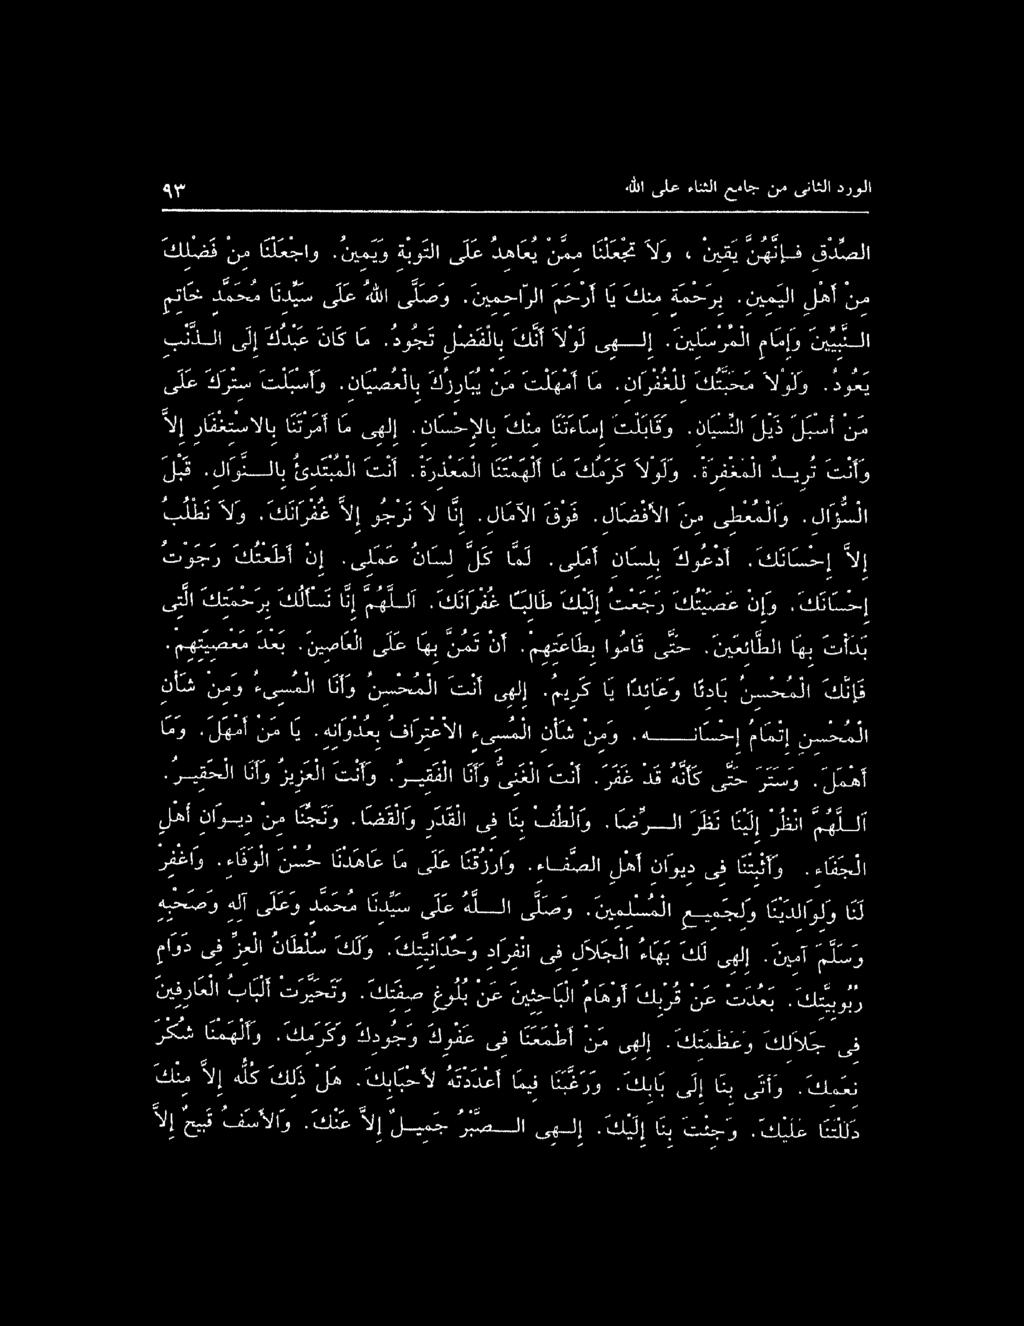 الورد الثانى من جامع الثناء على الله ٩٣
الصِّدْقِ فَـإِنَّهُنَّ يَقِينْ ، وَلاَ تَجْعَلْنَا مِمَّنْ يُعَاهِدُ عَلَى التَّوْبَةِ وَيَمِينُ. واجْعَلْنَا مِنْ فَضْلِكَ
مِنْ أَهْلِ اليَمِينِ. بِرَحْمَةٍ مِنكَ يَا أَرْحَمَ الرَّاحِمِينَ. وَصَلَّى اللهُ عَلَى سَيِّدِنَا مُحَمَّدٍ خَاتِمِ
الـنَّبِيِّينَ وَإِمَامِ الْمُرْسَلِينَ. إِلـــهِى لَوْلاَ أَنَّكَ بِالْفَضْلِ تَجُودُ. مَا كَانَ عَبْدُكَ إِلَى الـذَّنْبِ
يَعُودُ. وَلَوْلاَ مَحَبَّتُكَ لِلْغُفْرَانِ. مَا أَمْهَلْتَ مَنْ يُبَارِزُكَ بِالْعِصْيَانِ. وَأَسْبَلْتَ سِتْرَكَ عَلَى
مَنْ أَسْبَلَ ذَيْلَ النِّسْيَانِ. وَقَابَلْتَ إِسَاءَتَنَا مِنْكَ بِالإِحْسَانِ. إِلهِى مَا أَمَرْتَنَا بِالاسْتِغْفَارِ إِلاَّ
وَأَنْتَ تُرِيـدُ الْمَغْفِرَةَ. وَلَوْلاَ كَرَمُكَ مَا أَلْهَمْتَنَا الْمَعْذِرَةَ. أَنْتَ الْمُبْتَدِئُ بِالـــنَّوَالِ. قَبْلَ
السُّؤَالِ. وَالْمُعْطِى مِنَ الأَفْضَالِ. فَوْقَ الآمَالِ. إِنَّا لاَ نَرْجُو إِلاَّ غُفْرَانَكَ. وَلاَ نَطْلُبُ
إِلاَّ إِحْسَانَكَ. أَدْعُوكَ بِلِسَانِ أَمَلِى. لَمَّا كَلَّ لِسَانُ عَمَلِى. إِنْ أَطَعْتُكَ رَجَوْتُ
إِحْسَانَكَ. وَإِنْ عَصَيْتُكَ رَجَعْتُ إِلَيْكَ طَالِبًا غُفْرَانَكَ. اَلـلَّهُمَّ إِنَّا نَسْأَلُكَ بِرَحْمَتِكَ الَّتِى
بَدَأْتَ بِهَا الطَّائِعِينَ. حَتَّى قَامُوا بِطَاعَتِهِمْ. أَنْ تَمُنَّ بِهَا عَلَى الْعَاصِينَ. بَعْدَ مَعْصِيَتِهِمْ.
فَإِنَّكَ الْمُحْسِنُ بَادِئًا وَعَائِدًا يَا كَرِيمُ. إِلهِى أَنْتَ الْمُحْسِنُ وَأَنَا الْمُسِىءُ وَمِنْ شَأْنِ
الْمُحْسِنِ إِتْمَامُ إِحْسَانِــــــهِ. وَمِنْ شَأْنِ الْمُسِىءِ الاعْتِرَافُ بِعُدْوَانِهِ. يَا مَنْ أَمْهَلَ. وَمَا
أَهْمَلَ. وَسَتَرَ حَتَّى كَأَنَّهُ قَدْ غَفَرَ. أَنْتَ الْغَنِىُّ وَأَنَا الْفَقِيـرُ. وَأَنْتَ الْعَزِيزُ وَأَنَا الْحَقِيـرُ.
اَلـلَّهُمَّ انْظُرْ إِلَيْنَا نَظَرَ الـــرِّضَا. وَالْطُفْ بِنَا فِى الْقَدَرِ وَالْقَضَا. وَنَجِّنَا مِنْ دِيـوَانِ أَهْلِ
الْجَفَاءِ. وَأَثْبِتْنَا فِى دِيوَانِ أَهْلِ الصَّفَـاءِ. وَارْزُقْنَا عَلَى مَا عَاهَدْنَا حُسْنَ الْوَفَاءِ. وَاغْفِرْ
لَنَا وَلِوَالِدَيْنَا وَلِجَمِيـعِ الْمُسْلِمِينَ. وَصَلَّى الـــلَّهُ عَلَى سَيِّدِنَا مُحَمَّدٍ وَعَلَى آلِهِ وَصَحْبِهِ
وَسَلَّمَ آمِينَ. إِلهِى لَكَ بَهَاءُ الْجَلاَلِ فِى انْفِرَادِ وَحْدَانِيَّتِكَ. وَلَكَ سُلْطَانُ الْعِزِّ فِى دَوَامِ
رُبُوبِيَّتِكَ. بَعُدَتْ عَنْ قُرْبِكَ أَوْهَامُ الْبَاحِثِينَ عَنْ بُلُوغِ صِفَتِكَ. وَتَحَيَّرَتْ أَلْبَابُ الْعَارِفِينَ
فِى جَلاَلِكَ وَعَظَمَتِكَ. إِلهِى مَنْ أَطْمَعَنَا فِى عَفْوِكَ وَجُودِكَ وَكَرَمِكَ. وَأَلْهَمَنَا شُكْرَ
نِعَمِكَ. وَأَتَى بِنَا إِلَى بَابِكَ. وَرَغَّبَنَا فِيمَا أَعْدَدْتَهُ لأَحْبَابِكَ. هَلْ ذَلِكَ كُلُّهُ إِلاَّ مِنْكَ
دَلَلْتَنَا عَلَيْكَ. وَجِئْتَ بِنَا إِلَيْكَ. إِلـهِى الـــصَّبْرُ جَمِيـلٌ إِلاَّ عَنْكَ. وَالأَسَفُ قَبِيحٌ إِلاَّ